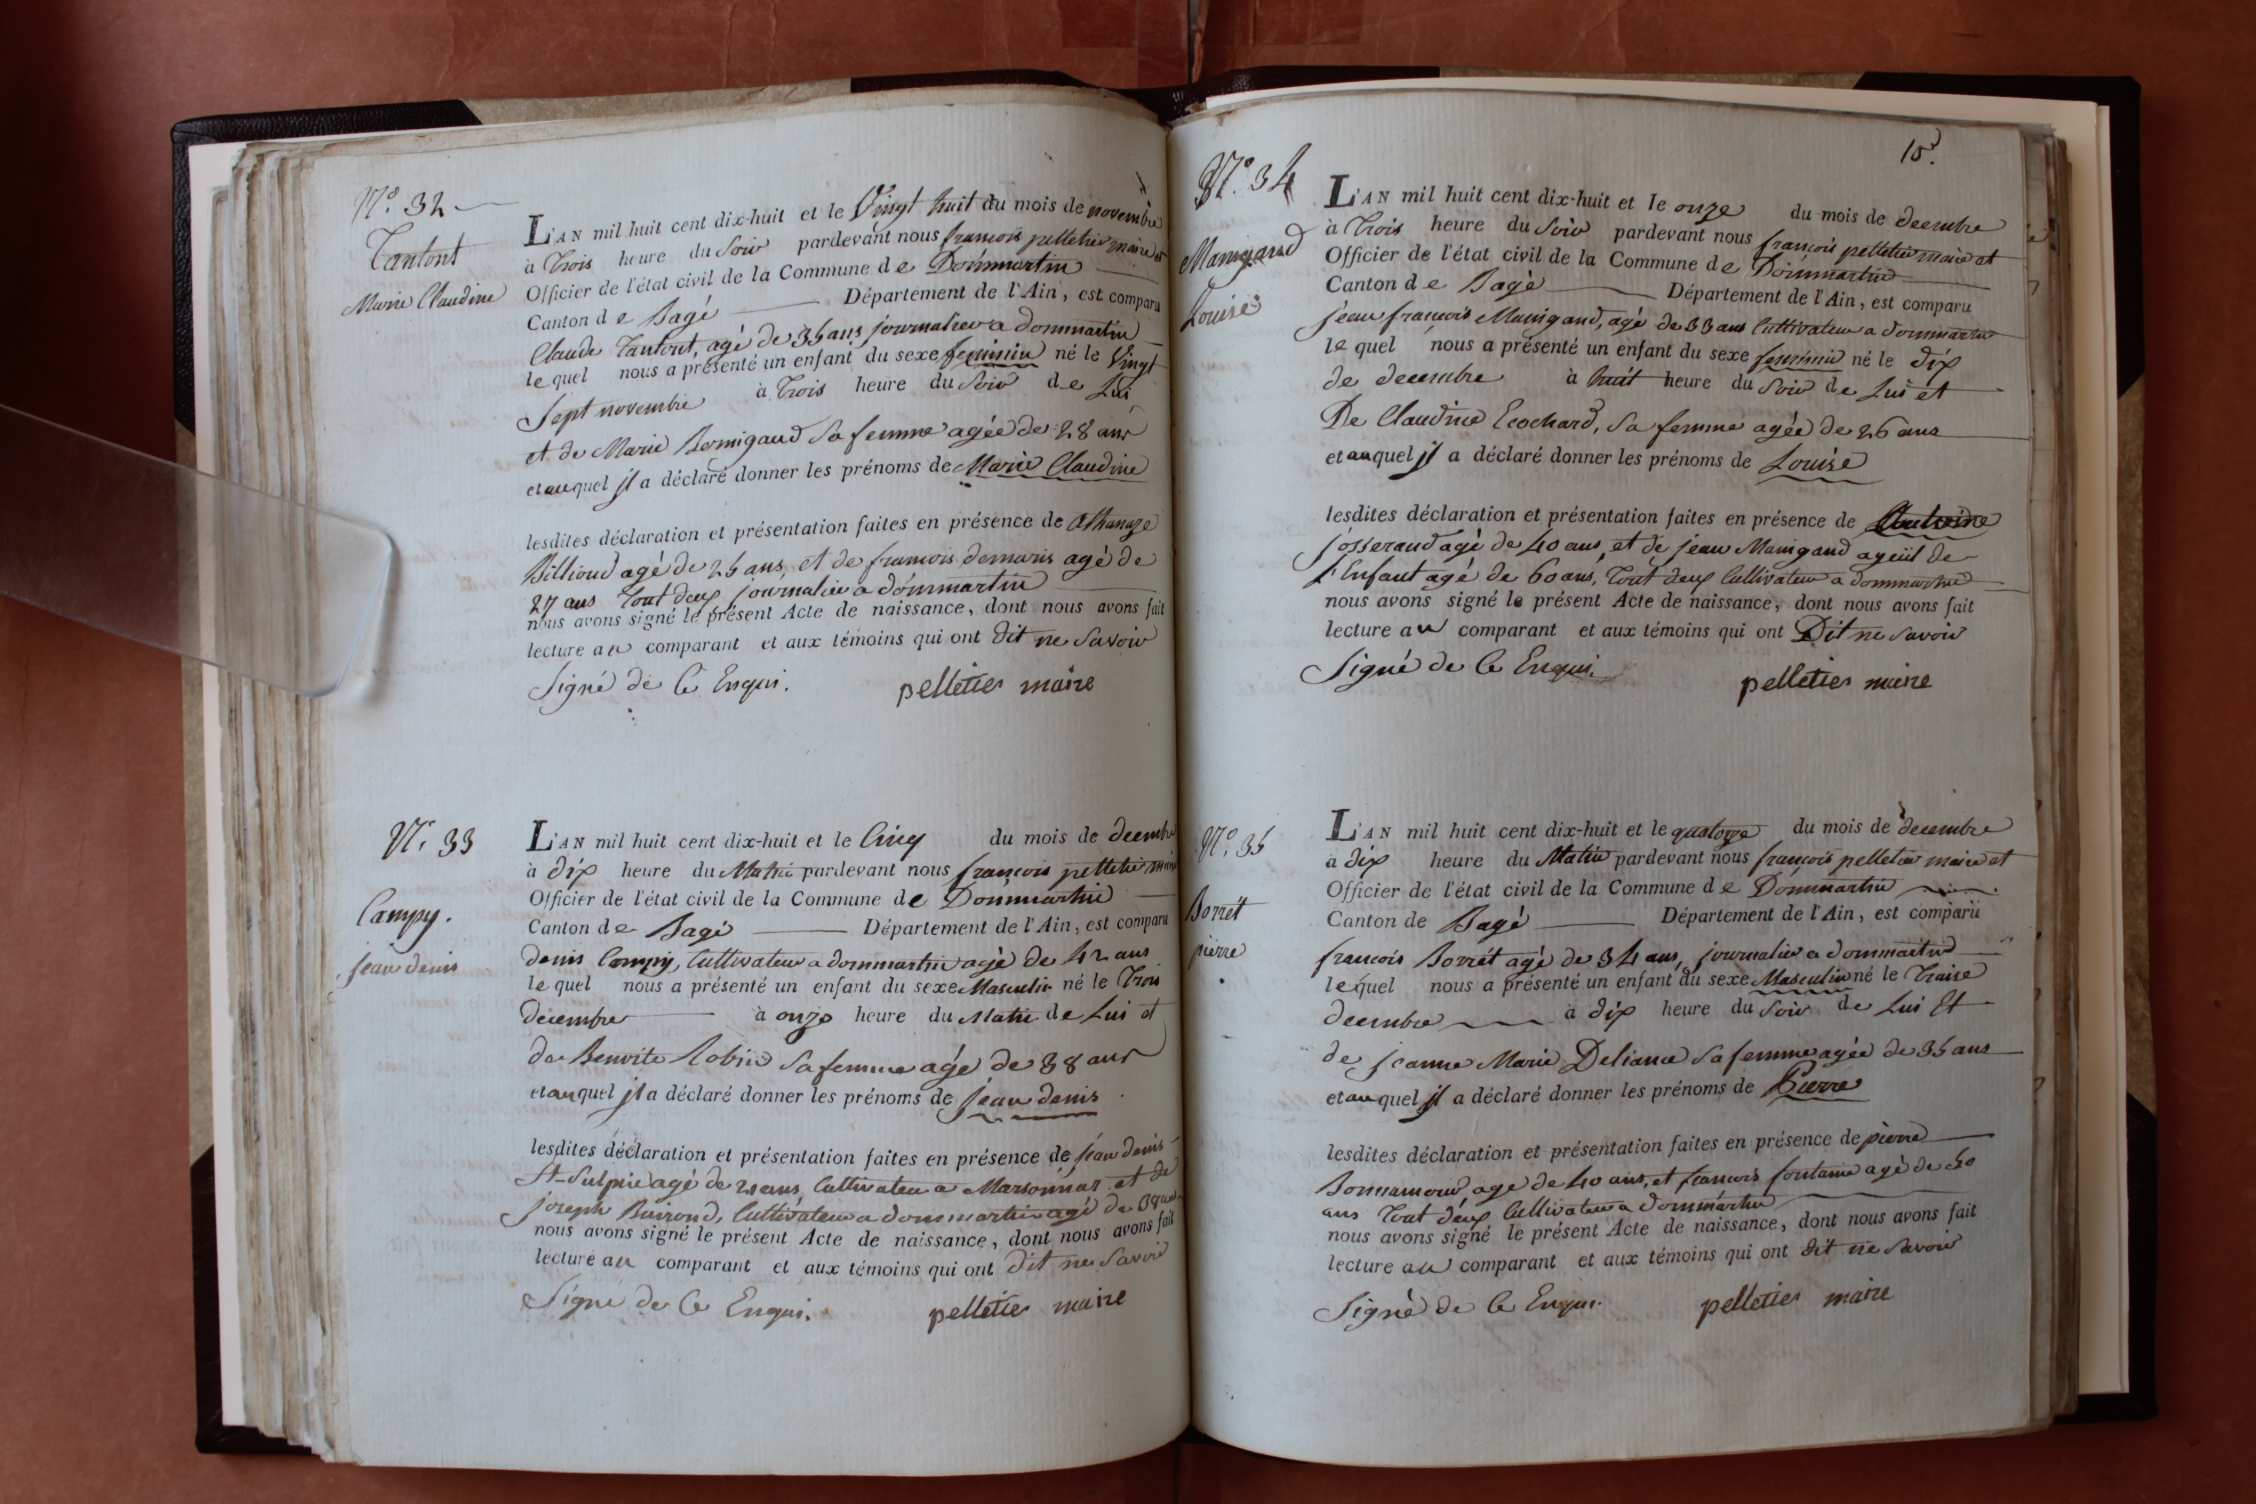 N.o 32
Tantont
Marie Claudine
L'AN mil huit cent dix-huit et le Vingt huit du mois de novembre
à Trois heure du Soir pardevant nous françois pelletier maire et
Officier de l'état civil de la Commune de Dommartin
Canton de Bagé Département de l'Ain, est comparu
Claude Tantont, agé de 35 ans journalier a dommartin
lequel nous a présenté un enfant du sexe feminin né le Vingt
Sept novembre à Trois heure du Soir de Lui
et de Marie Bernigaud Sa femme agée de 28 ans
et auquel jl a déclaré donner les prénoms de Marie Claudine
lesdites déclaration et présentation faites en présence de Athanaze
Billioud agé de 25 ans et de francois demaris agé de
27 ans Tout deux journalier a dommartin
nous avons signé le présent Acte de naissance, dont nous avons fait
lecture au comparant et aux témoins qui ont dit ne Savoir
Signé de Ce Enqui.
pelletier maire
N.o 33
Campy.
jean denis
L'AN mil huit cent dix-huit et le Cinq du mois de decembre
à dix heure du Matin pardevant nous françois pelletier maire
Officier de l'état civil de la Commune de Dommartin
Canton de Bagé Département de l'Ain, est comparu
denis Campy, Cultivateur a dommartin agé de 42 ans
lequel nous a présenté un enfant du sexe Masculin né le Trois
decembre à onze heure du Matin de Lui et
de Benoite Robin Sa femme agée de 38 ans
et auquel jl a déclaré donner les prénoms de jean denis
lesdites déclaration et présentation faites en présence de jean denis
St-Sulpice agé de 21 ans, Cultivateur a Marsonnas et de
joseph Buirond, Cultivateur a dommartin agé de 38 ans
nous avons signé le présent Acte de naissance, dont nous avons fait
lecture au comparant et aux témoins qui ont dit ne Savoir
Signé de Ce Enqui.
pelletier maire
18.
N.o 34
Manigand
Louise
L'AN mil huit cent dix-huit et le onze du mois de decembre
à Trois heure du Soir pardevant nous françois pelletier maire et
Officier de l'état civil de la Commune de Dommartin
Canton de Bagé Département de l'Ain, est comparu
jean francois Manigand, agé de 33 ans Cultivateur a dommartin
lequel nous a présenté un enfant du sexe feminin né le dix
de decembre à huit heure du Soir de Lui et
De Claudine Ecochard, Sa femme agée de 26 ans
et auquel jl a déclaré donner les prénoms de Louise
lesdites déclaration et présentation faites en présence de Antoine
josserand agé de 40 ans, et de jean Manigand ayeül de
l'Enfant agé de 60 ans, Tout deux Cultivateur a dommartin
nous avons signé le présent Acte de naissance, dont nous avons fait
lecture au comparant et aux témoins qui ont Dit ne Savoir
Signé de Ce Enqui.
pelletier maire
N.o 35
Borrét
pierre
L'AN mil huit cent dix-huit et le quatorze du mois de decembre
à dix heure du Matin pardevant nous françois pelletier maire et
Officier de l'état civil de la Commune de Dommartin
Canton de Bagé Département de l'Ain, est comparu
francois Borrét agé de 34 ans, journalier a dommartin
lequel nous a présenté un enfant du sexe Masculin né le Traise
decembre à dix heure du Soir de Lui Et
de jeanne Marie Deliance Sa femme agée de 35 ans
et auquel jl a déclaré donner les prénoms de Pierre
lesdites déclaration et présentation faites en présence de pierre
Bonnamour, age de 40 ans, et francois fontaine agé de 50
ans Tout deux Cultivateur a dommartin
nous avons signé le présent Acte de naissance, dont nous avons fait
lecture au comparant et aux témoins qui ont dit ne Savoir
Signé de Ce Enqui.
pelletier maire